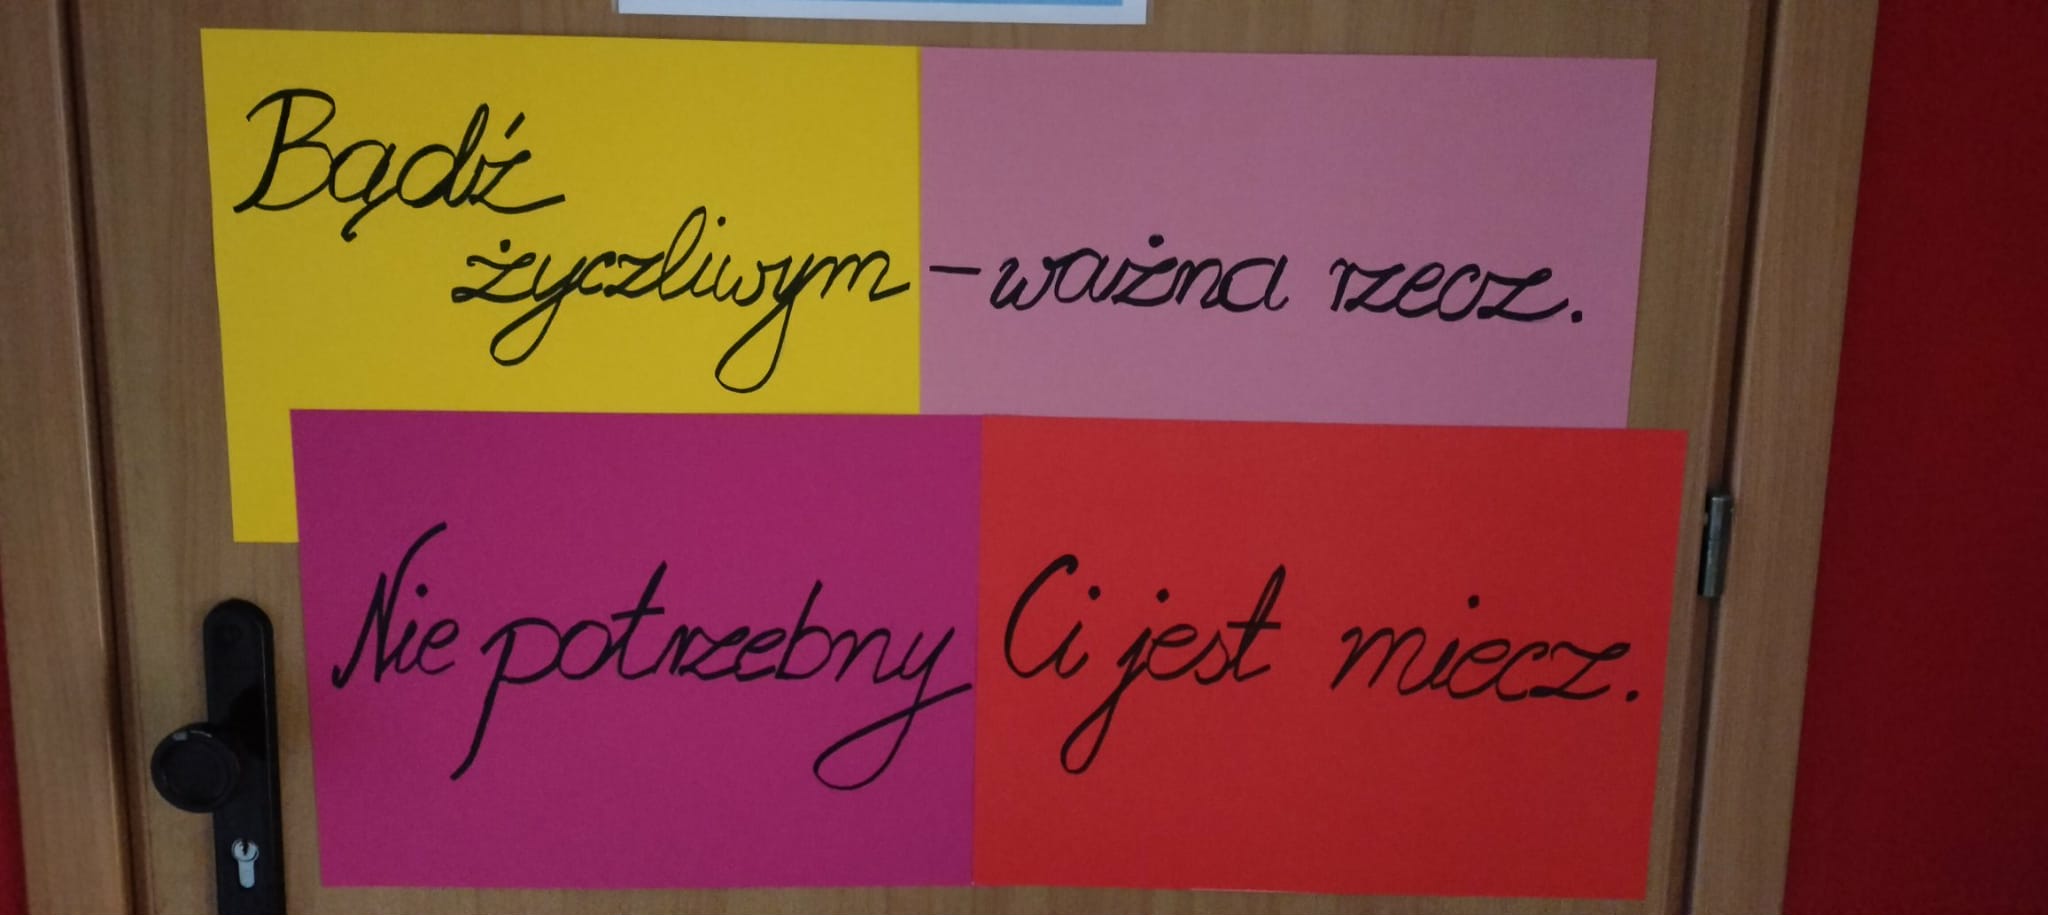 Bądź
życzliwym – ważna rzecz.
Nie potrzebny Ci jest miecz.